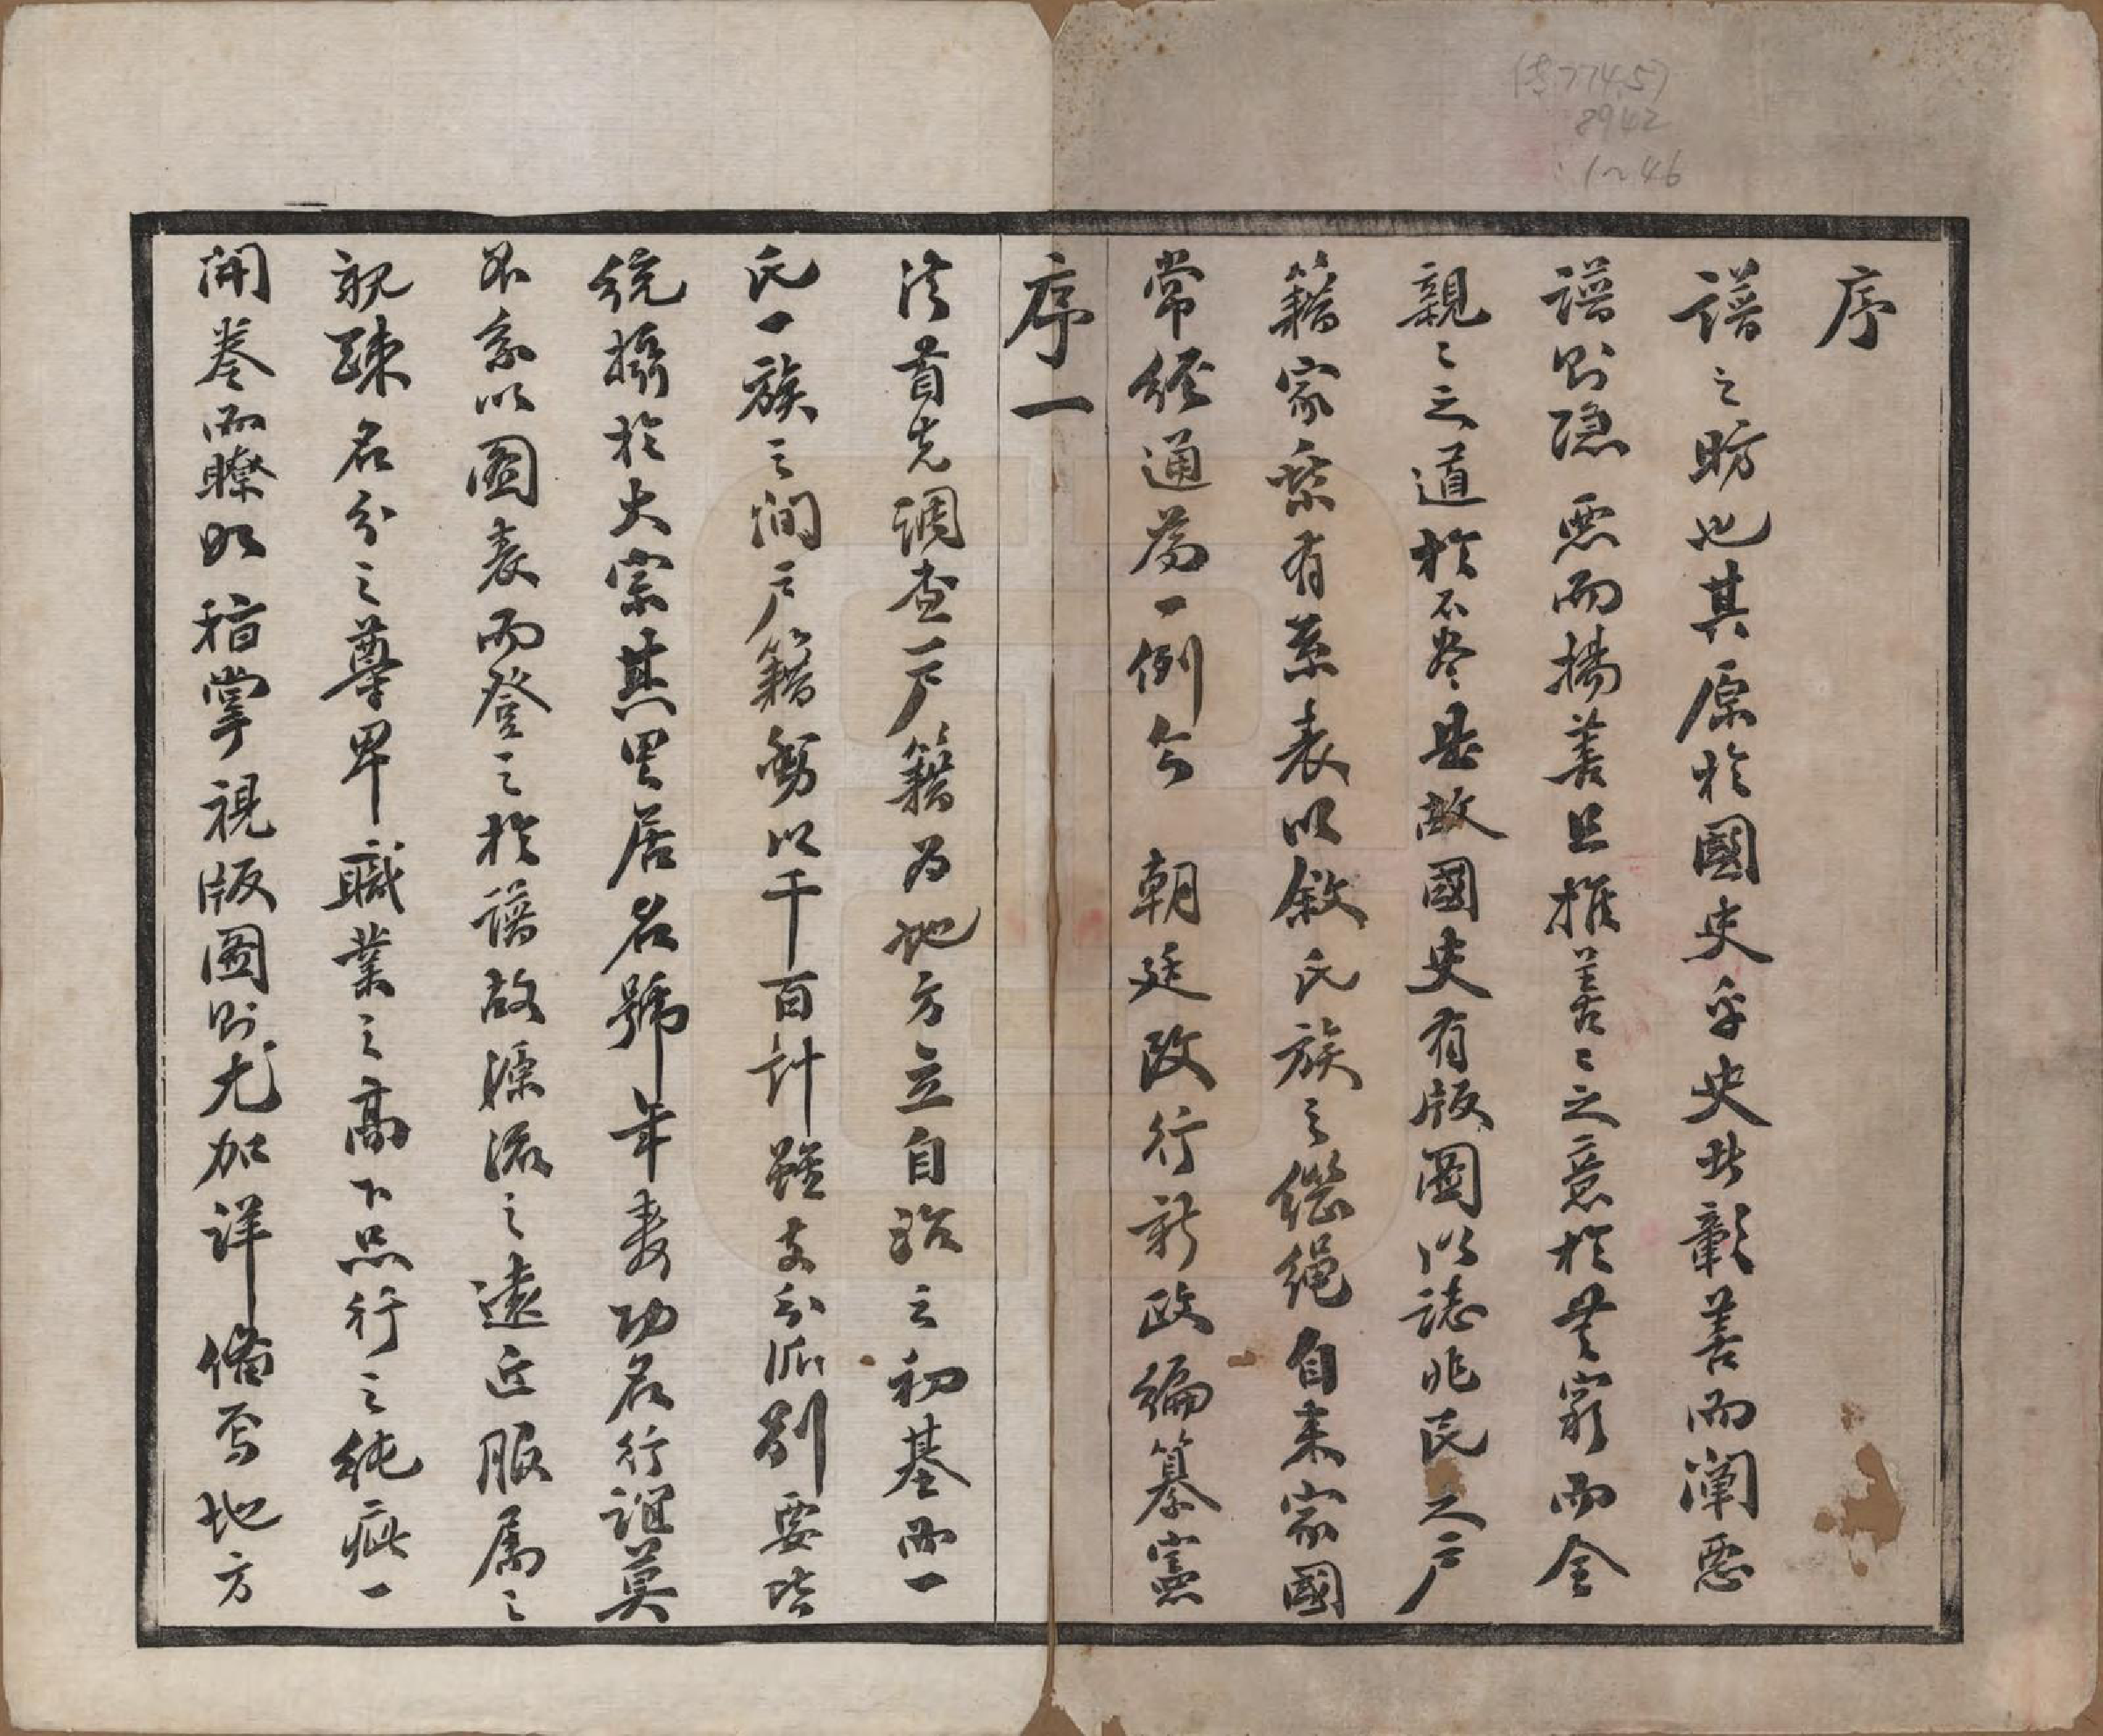 序
譜之昉也其原於國史乎史非彰善而闡惡
譜則隐惡而揚善且推善善之意於無窮而全
親親之道於不盡是故國史有版圖以誌兆民之戶
籍家乘有系表以敘氏族之繼繩自来家國
常經通為一例今　朝廷改行新政編纂憲
序一
法首先調查戶籍為地方立自治之初基而一
氏一族之间戶籍動以千百計雖支分派别要皆
統攝於大宗其里居名號年壽功名行誼莫
不系以圖表而登之於譜故源流之遠近服属之
親疎名分之尊卑職業之高下品行之純疵一
開卷而瞭如指掌視版圖則尤加詳備焉地方
774.57
8942
:1~46